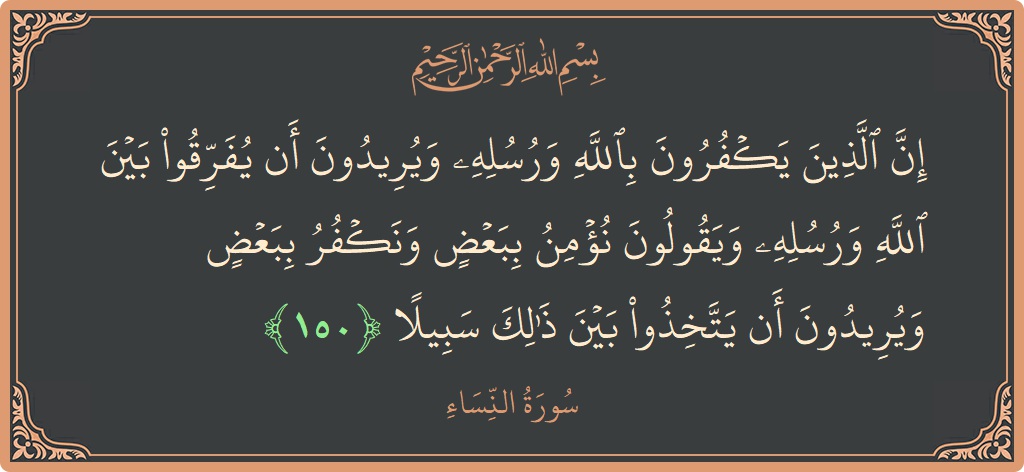 بِسْمِ اللهِ الرَّحْمٰنِ الرَّحِيْمِ
إِنَّ ٱلَّذِينَ يَكۡفُرُونَ بِٱللَّهِ وَرُسُلِهِۦ وَيُرِيدُونَ أَن يُفَرِّقُواْ بَيۡنَ
ٱللَّهِ وَرُسُلِهِۦ وَيَقُولُونَ نُؤۡمِنُ بِبَعۡضٖ وَنَكۡفُرُ بِبَعۡضٖ
وَيُرِيدُونَ أَن يَتَّخِذُواْ بَيۡنَ ذَٰلِكَ سَبِيلًا ﴿١٥٠﴾
سُورَةُ النِّسَاءِ